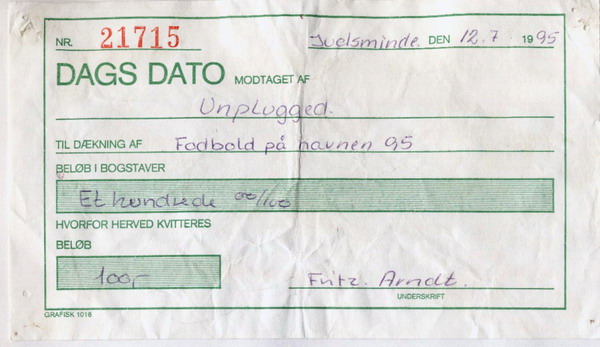 NR. 21715 Juelsminde. DEN 12.7 1995
DAGS DATO MODTAGET AF
Unplugged.
TIL DÆKNING AF Fodbold på havnen 95
BELØB I BOGSTAVER
Et hundrede 00/100
HVORFOR HERVED KVITTERES
BELØB
100,-
Fritz. Arndt.
UNDERSKRIFT
GRAFISK 1016